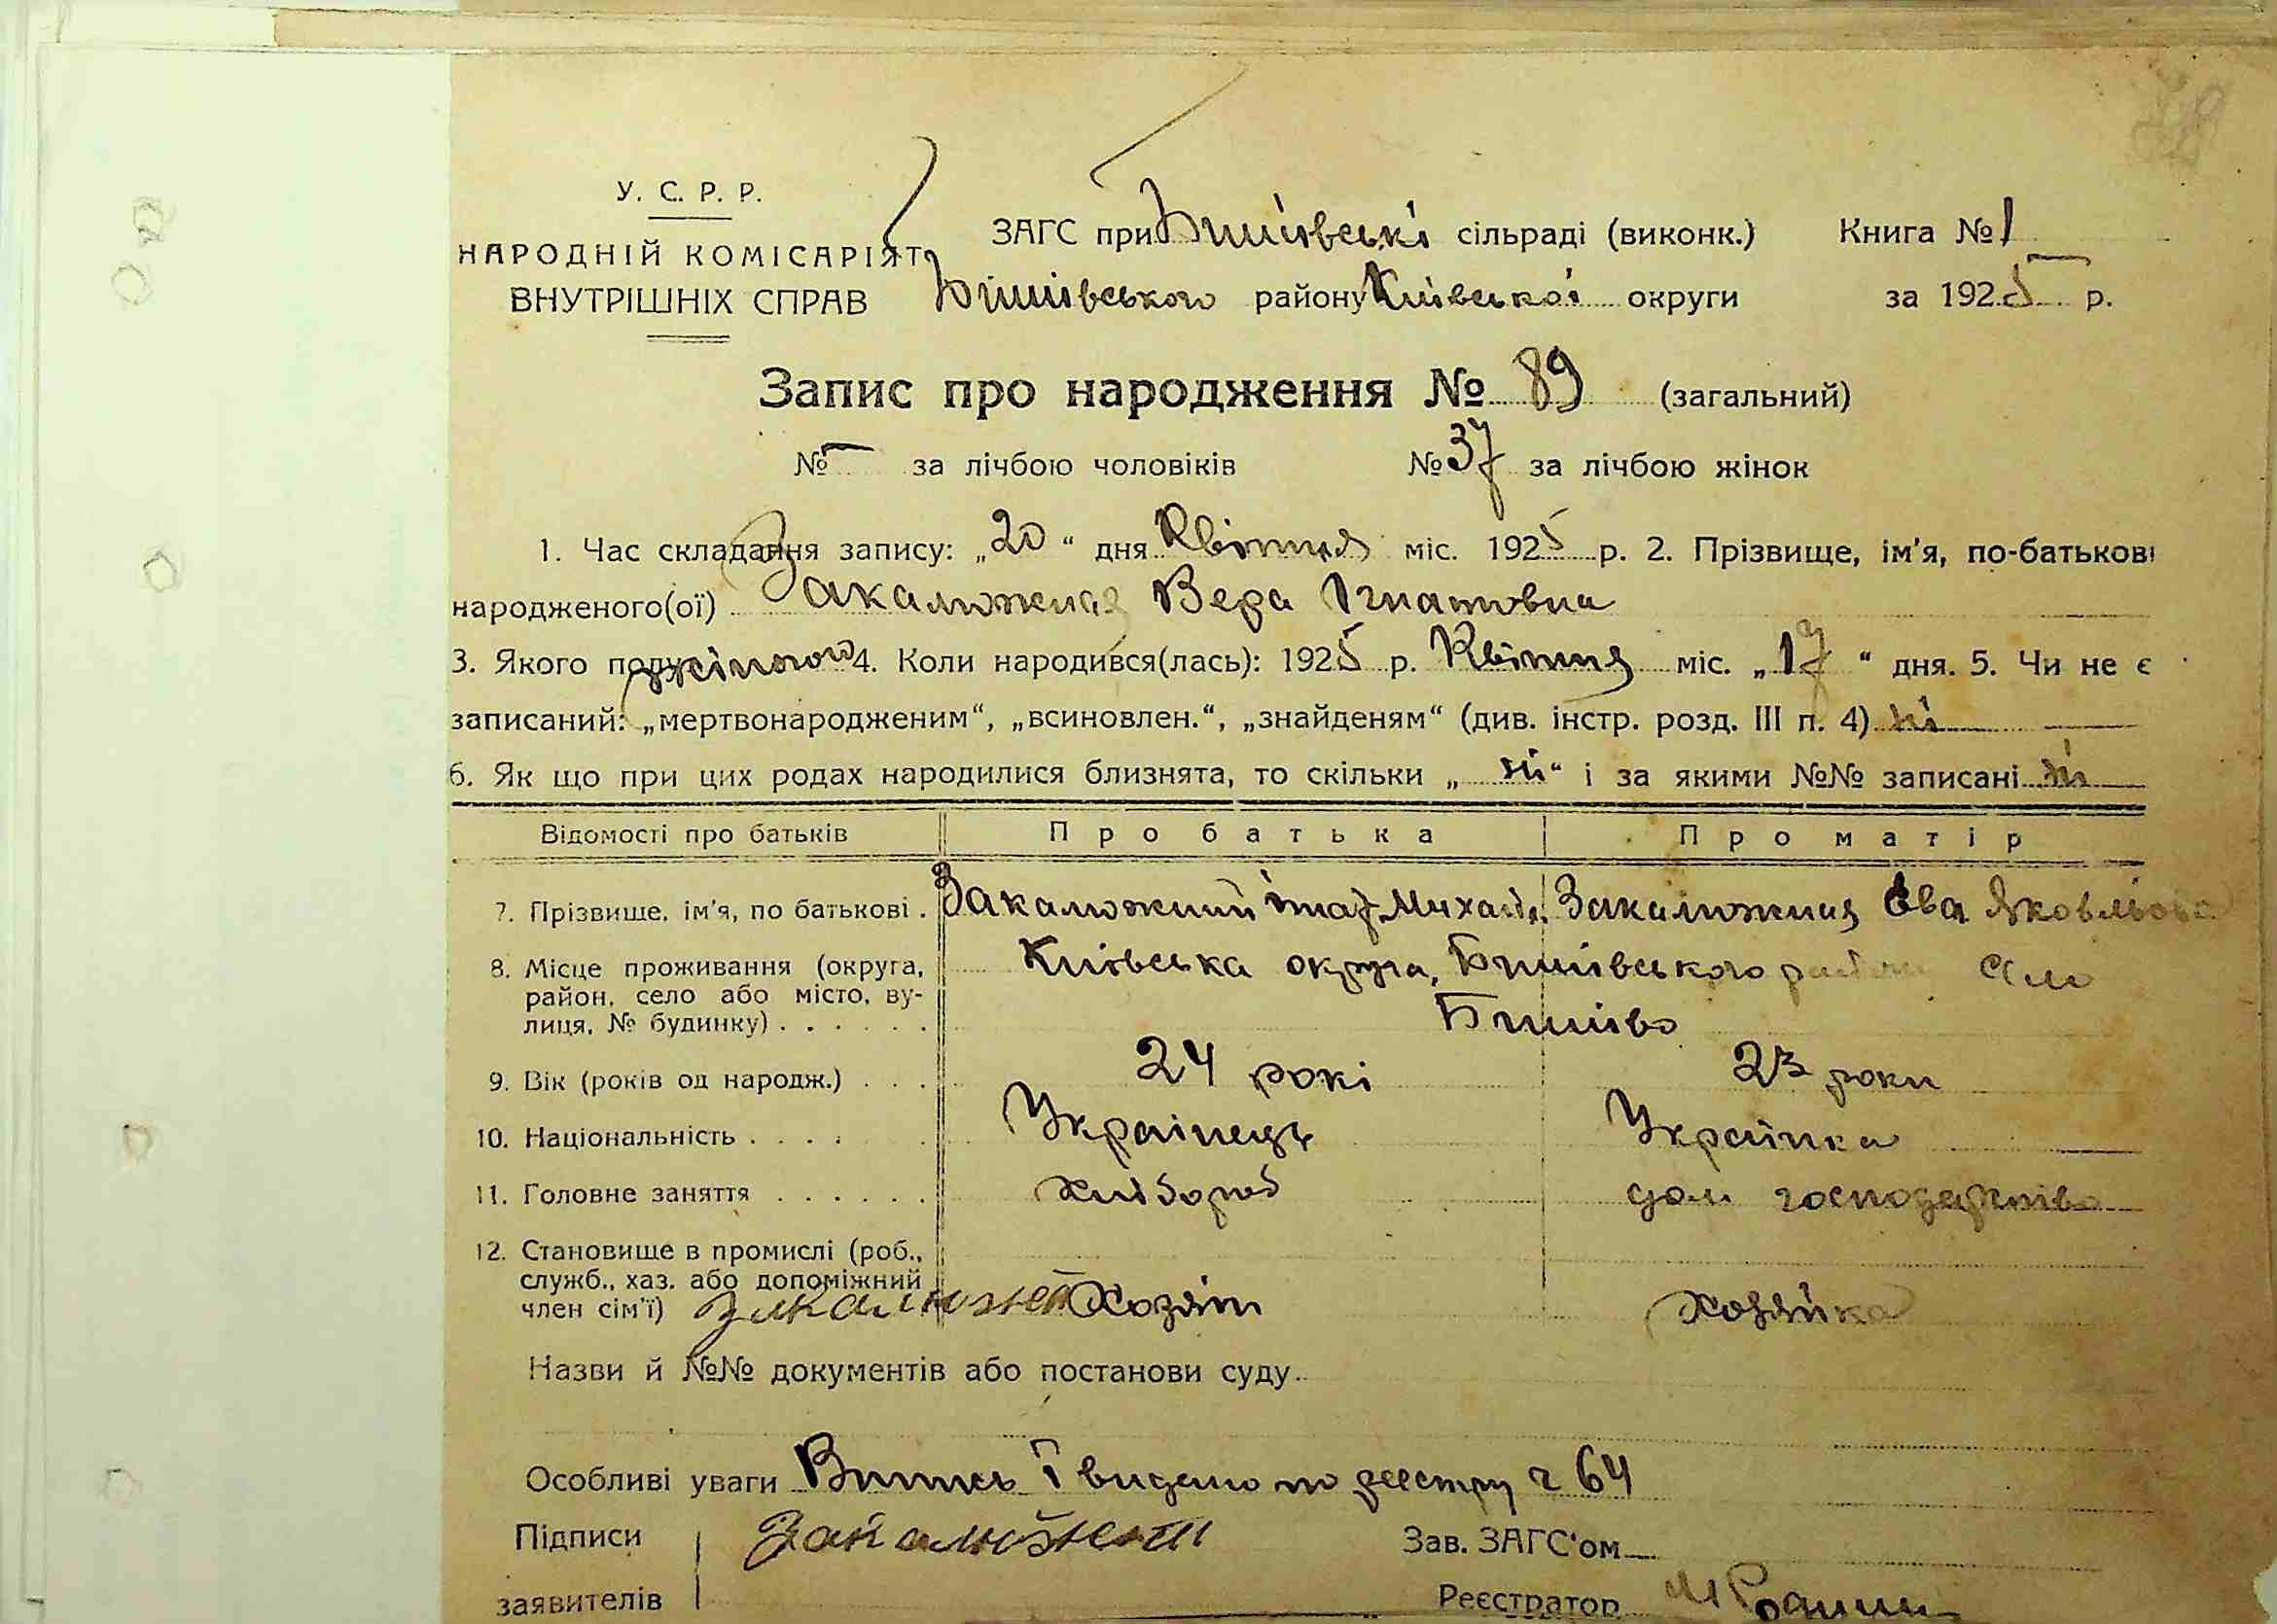 У. С. Р. Р.
НАРОДНІЙ КОМІСАРІЯТ
ВНУТРІШНІХ СПРАВ
ЗАГС при Бишівські сільраді (виконк.) Книга № 1
Бишівського району Київської округи за 1925 р.
Запис про народження № 89 (загальний)
№ — за лічбою чоловіків № 37 за лічбою жінок
1. Час складання запису: „20“ дня Квітня міс. 1925 р. 2. Прізвище, ім'я, по-батькові
народженого(ої) Закалюжная Вера Ігнатовна
3. Якого полу жіночого 4. Коли народився(лась): 1925 р. Квітня міс. „17“ дня. 5. Чи не є
записаний: „мертвонародженим“, „всиновлен.“, „знайденям“ (див. інстр. розд. III п. 4) ні
6. Як що при цих родах народилися близнята, то скільки „ні“ і за якими №№ записані ні
Відомості про батьків Про батька Про матір
7. Прізвище, ім'я, по батькові . Закалюжний Ігнат Михайл. Закалюжная Ева Яковлівна
8. Місце проживання (округа, Київська округа, Бишівського району село
район, село або місто, ву-
лиця, № будинку) . . . . . . Бишів
9. Вік (років од народж.) . . . 24 рокі 23 роки
10. Національність . . . . Українець Українка
11. Головне заняття . . . . . . Хлібороб дом господарство
12. Становище в промислі (роб.,
служб., хаз. або допоміжний
член сім'ї) Хозяїн Хозяйка
Назви й №№ документів або постанови суду
Особливі уваги Випись видано по реєстру ч 64
Підписи Закалюжний Зав. ЗАГС'ом
заявителів Реєстратор